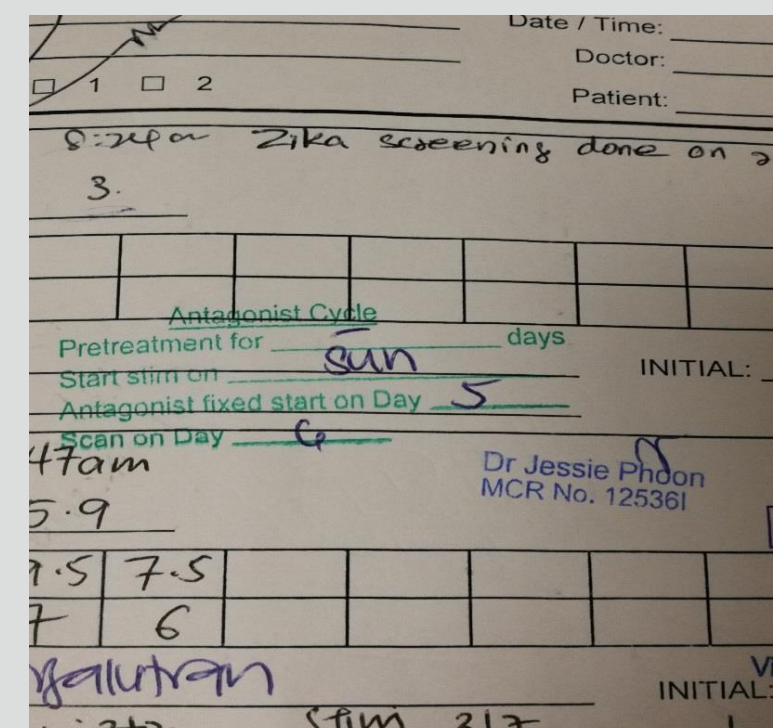 Date / Time:
Doctor:
1 2
Patient:
Zika screening done on
3.
Antagonist Cycle
Pretreatment for days
Start stim on sun
INITIAL:
Antagonist fixed start on Day 5
Scan on Day 6
47am
Dr Jessie Phoon
MCR No. 12536I
5.9
9.5 7.5
7 6
INITIAL:
stim